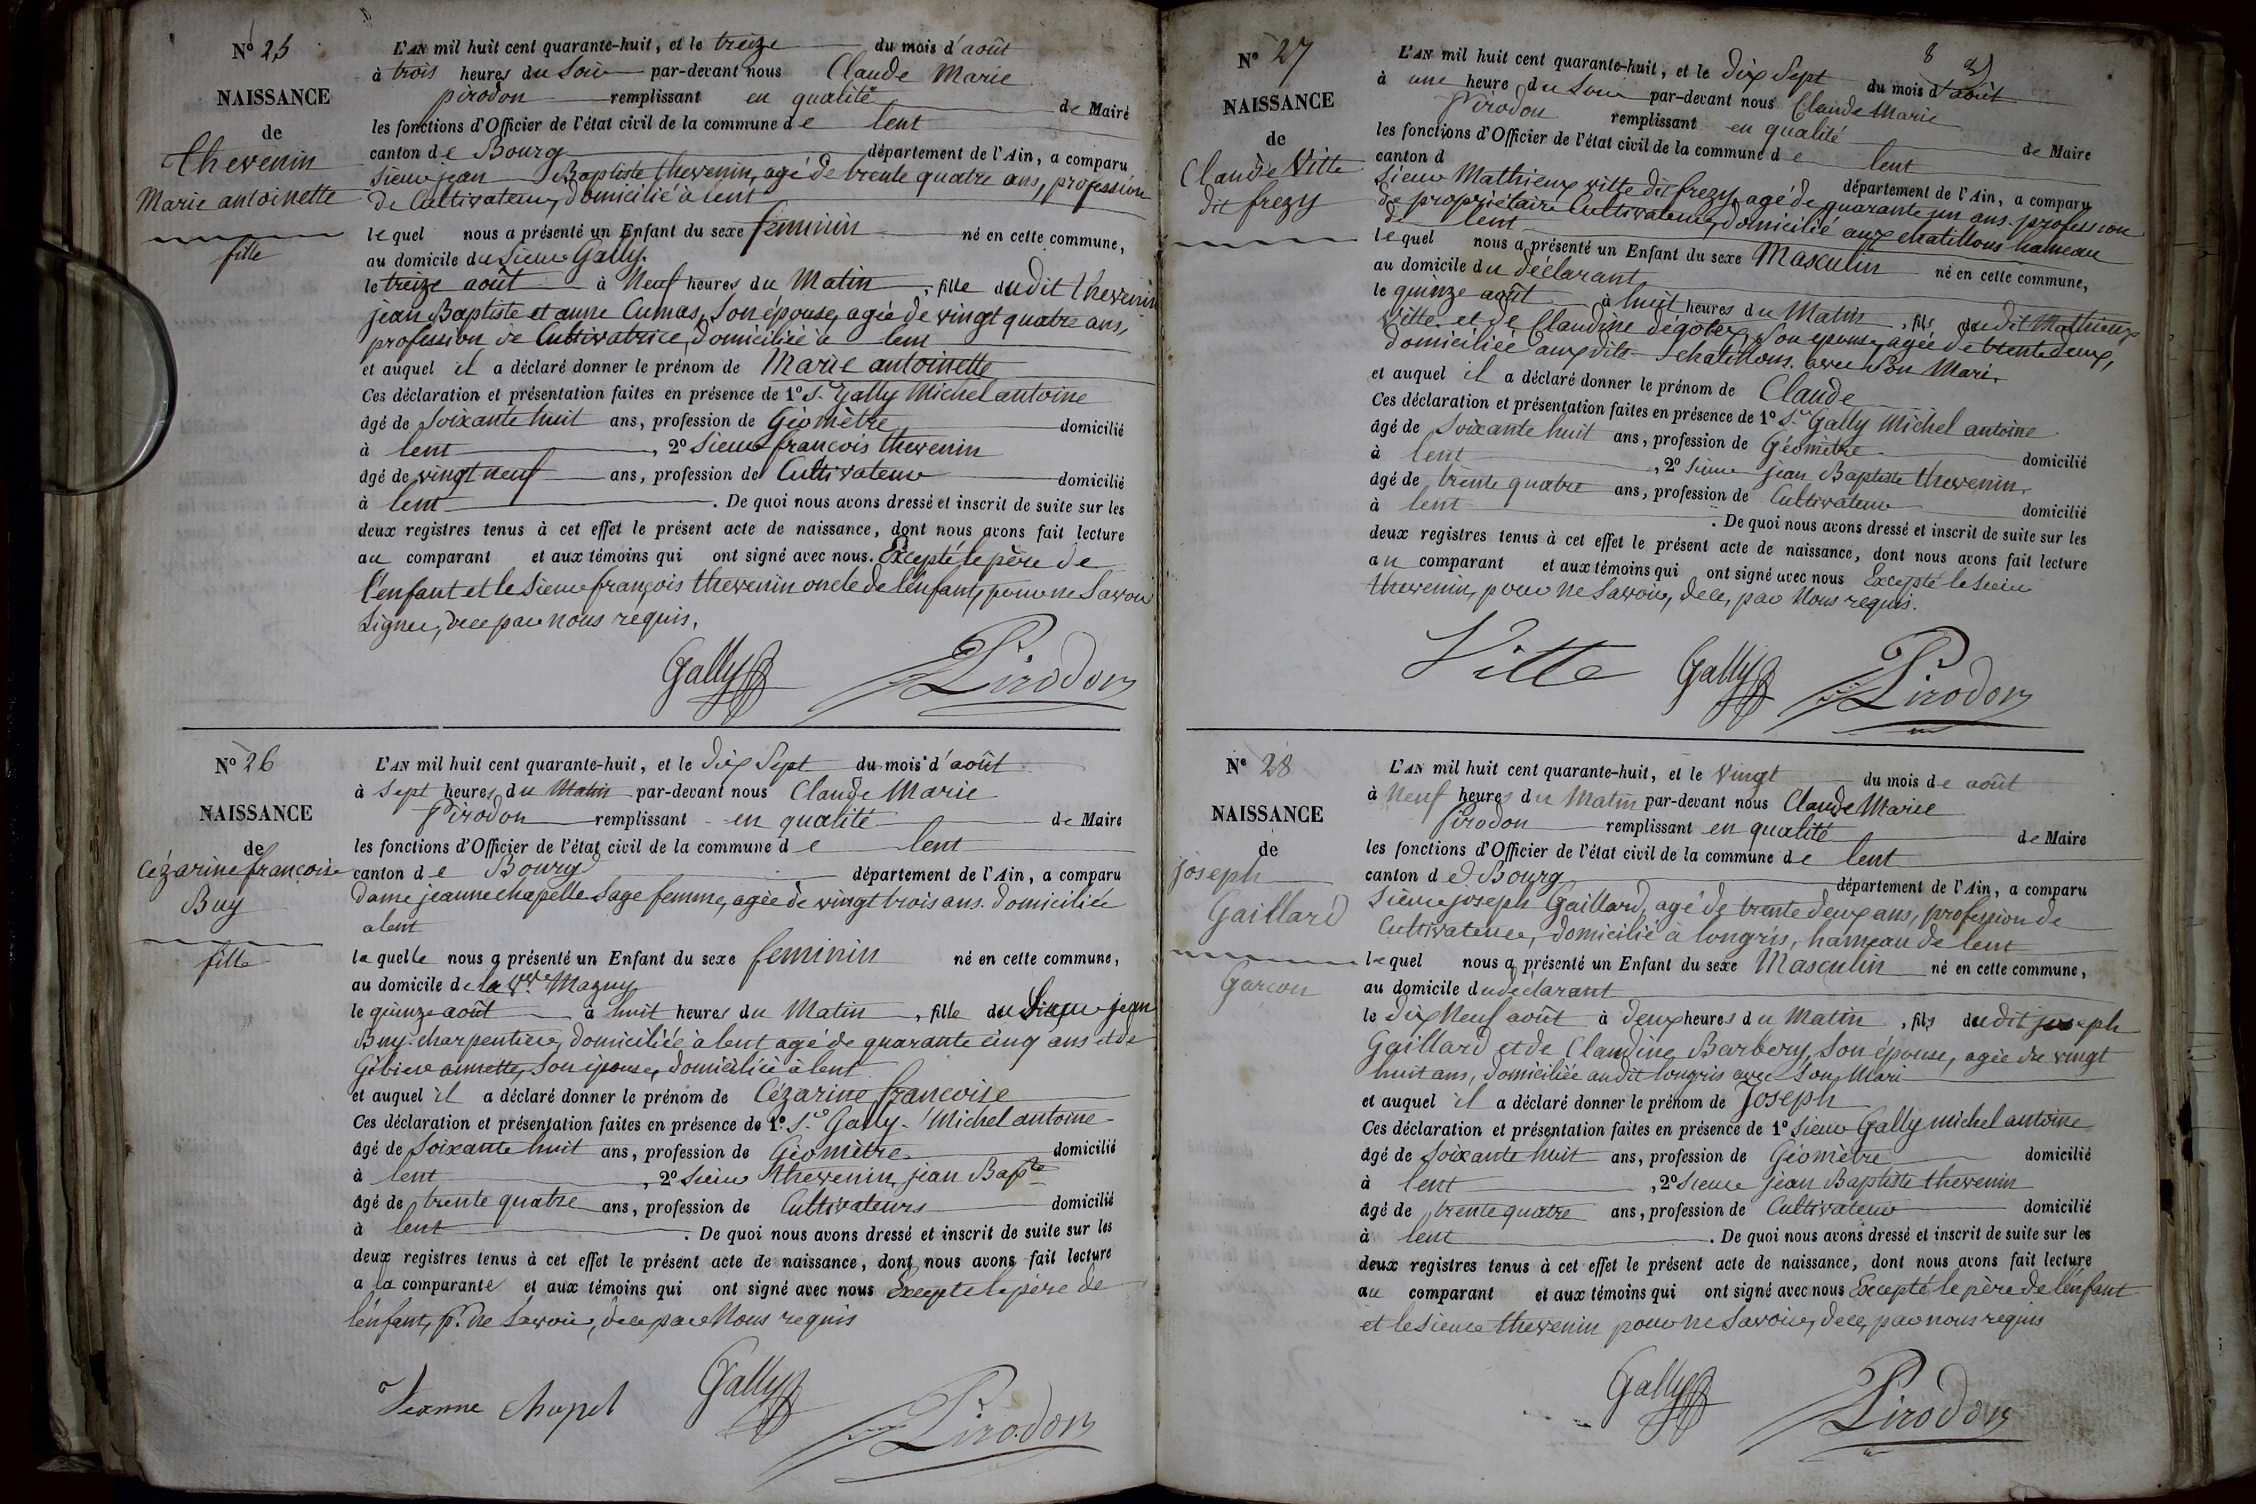 Nº 25
NAISSANCE
de
Thevenin
Marie antoinette
fille
L'AN mil huit cent quarante-huit, et le treize du mois d'août
à trois heures du Soir par-devant nous Claude Marie
pirodon remplissant en qualité de Maire
les fonctions d'Officier de l'état civil de la commune de lent
canton de Bourg département de l'Ain, a comparu
Sieur jean Baptiste thevenin, agé de trente quatre ans, profession
de Cultivateur, domicilié à lent
lequel nous a présenté un Enfant du sexe feminin né en cette commune,
au domicile du Sieur Gally.
le treize août à Neuf heures du Matin, fille dudit thevenin
jean Baptiste et anne Cumas, Son épouse, agée de vingt quatre ans,
profession de Cultivatrice, domiciliée à lent
et auquel il a déclaré donner le prénom de Marie antoinette
Ces déclaration et présentation faites en présence de 1º S. Gally Michel antoine
âgé de Soixante huit ans, profession de Géomètre domicilié
à lent, 2º Sieur françois thevenin
âgé de vingt neuf ans, profession de Cultivateur domicilié
à lent. De quoi nous avons dressé et inscrit de suite sur les
deux registres tenus à cet effet le présent acte de naissance, dont nous avons fait lecture
au comparant et aux témoins qui ont signé avec nous. Excepté le père de
l'enfant et le Sieur françois thevenin oncle de l'enfant, pour ne Savoir
Signer, de ce par nous requis.
Gally Pirodon
Nº 26
NAISSANCE
de
Cézarine françoise
Buy
fille
L'AN mil huit cent quarante-huit, et le dix Sept du mois d'août
à Sept heures du Matin par-devant nous Claude Marie
Pirodon remplissant en qualité de Maire
les fonctions d'Officier de l'état civil de la commune de lent
canton de Bourg département de l'Ain, a comparu
Dame jeanne chapelle Sage femme, agée de vingt trois ans. domiciliée
a lent
laquelle nous a présenté un Enfant du sexe feminin né en cette commune,
au domicile de la Vve Magny
le quinze août à huit heures du Matin, fille du Sieur jean
Buy charpentier, domiciliée à lent agé de quarante cinq ans et de
Gibier annette, Son épouse, domiciliée à lent
et auquel il a déclaré donner le prénom de Cézarine francoise
Ces déclaration et présentation faites en présence de 1º Sr Gally Michel antoine
âgé de Soixante huit ans, profession de Géomètre domicilié
à lent, 2º Sieur thevenin jean Bapte
âgé de trente quatre ans, profession de Cultivateurs domicilié
à lent. De quoi nous avons dressé et inscrit de suite sur les
deux registres tenus à cet effet le présent acte de naissance, dont nous avons fait lecture
a la comparante et aux témoins qui ont signé avec nous Excepté le père de
l'enfant, pr. ne Savoir, de ce par Nous requis
Jeanne Chapel Gally Pirodon
Nº 27
NAISSANCE
de
Claude Vitte
dit frezy
L'AN mil huit cent quarante-huit, et le dix Sept du mois d'août
à une heure du Soir par-devant nous Claude Marie
Pirodon remplissant en qualité de Maire
les fonctions d'Officier de l'état civil de la commune de lent
canton d département de l'Ain, a comparu
Sieur Mathieux vitte dit frezy, agé de quarante un ans. profession
de propriétaire Cultivateur, domicilié aux chatillons hameau
de lent
lequel nous a présenté un Enfant du sexe Masculin né en cette commune,
au domicile du déclarant
le quinze août à huit heures du Matin, fils dudit Mathieux
Vitte et de Claudine degoley, Son épouse, agée de trente deux,
domiciliée auxdits chatillons avec Son Mari.
et auquel il a déclaré donner le prénom de Claude
Ces déclaration et présentation faites en présence de 1º Sr Gally Michel antoine
âgé de Soixante huit ans, profession de Géomètre domicilié
à lent, 2º Sieur jean Baptiste thevenin.
âgé de trente quatre ans, profession de Cultivateur domicilié
à lent. De quoi nous avons dressé et inscrit de suite sur les
deux registres tenus à cet effet le présent acte de naissance, dont nous avons fait lecture
au comparant et aux témoins qui ont signé avec nous Excepté le Sieur
thevenin, pour ne Savoir, de ce, par Nous requis.
Vitte Gally Pirodon
Nº 28
NAISSANCE
de
joseph
Gaillard
Garçon
L'AN mil huit cent quarante-huit, et le Vingt du mois de août
à Neuf heures du Matin par-devant nous Claude Marie
Pirodon remplissant en qualité de Maire
les fonctions d'Officier de l'état civil de la commune de lent
canton de Bourg département de l'Ain, a comparu
Sieur joseph Gaillard, agé de trente deux ans, profession de
Cultivateur, domicilié à longris, hameau de lent
lequel nous a présenté un Enfant du sexe Masculin né en cette commune,
au domicile du déclarant
le dix Neuf août à deux heures du Matin, fils dudit joseph
Gaillard et de Claudine Barbery, Son épouse, agée de vingt
huit ans, domiciliée audit longris avec Son Mari
et auquel il a déclaré donner le prénom de Joseph
Ces déclaration et présentation faites en présence de 1º Sieur Gally michel antoine
âgé de Soixante huit ans, profession de Géomètre domicilié
à lent, 2º Sieur jean Baptiste thevenin
âgé de trente quatre ans, profession de Cultivateur domicilié
à lent. De quoi nous avons dressé et inscrit de suite sur les
deux registres tenus à cet effet le présent acte de naissance, dont nous avons fait lecture
au comparant et aux témoins qui ont signé avec nous Excepté le père de l'enfant
et le Sieur thevenin pour ne Savoir, de ce, par nous requis
Gally Pirodon